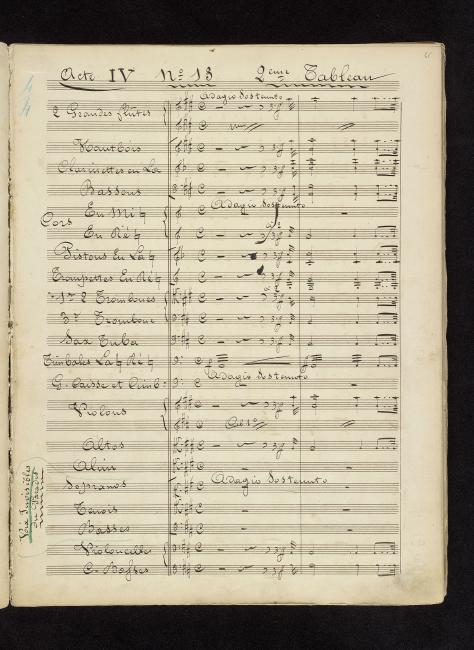 Acte IV Nº 13 2eme Tableau
Adagio Sostenuto
2 Grandes flûtes
Hautbois
Clarinettes en La
Bassons
Adagio Sostenuto
Cors
En Mi ♮
En Ré ♮
Pistons En La ♮
Trompettes En Ré ♮
1r 2 Trombones
3e Trombone
Sax Tuba
Timbales La ♮ Ré ♮
Adagio Sostenuto
G. Caisse et Cimb:
Violons
Col 1º
Altos
Adagio Sostenuto
Sopranos
Tenors
Basses
Voix Invisibles
du Paradis
Violoncelles
C. Basses